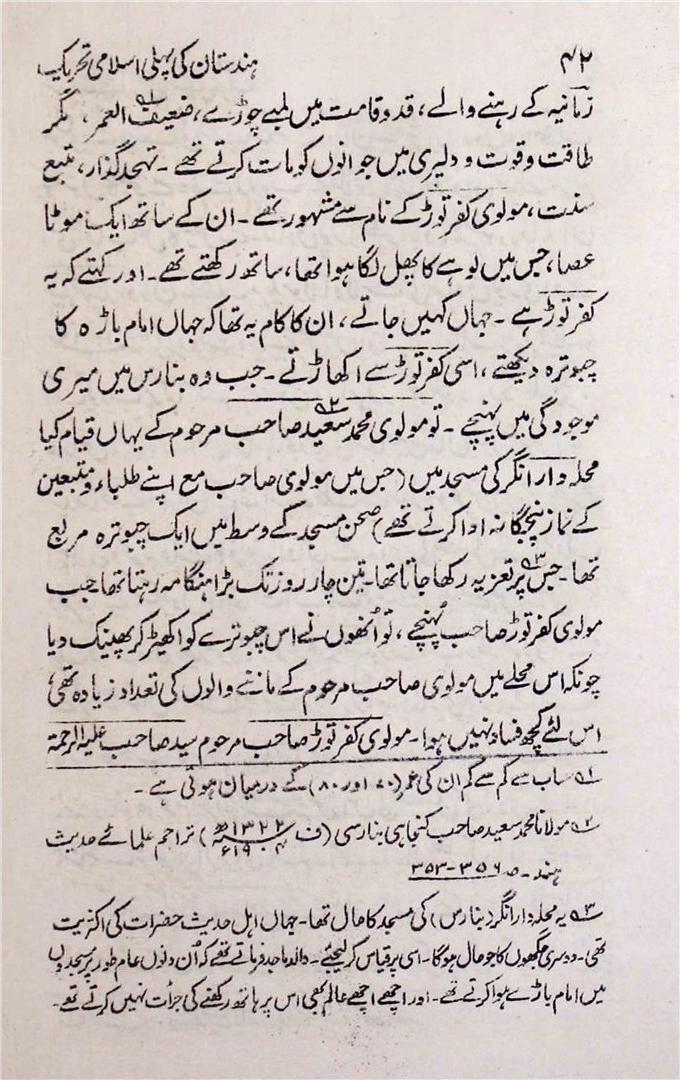 ۴۲ ہندستان کی پہلی اسلامی تحریک
زمانیہ کے رہنے والے، قد و قامت میں لمبے چوڑے، ضعیف العمر ۱؎، مگر
طاقت و قوت و دلیری میں جوانوں کو مات کرتے تھے۔ تہجد گذار، متبع
سنت، مولوی کفر توڑ کے نام سے مشہور تھے۔ ان کے ساتھ ایک موٹا
عصا، جس میں لوہے کا پھل لگا ہوا تھا، ساتھ رکھتے تھے۔ اور کہتے کہ یہ
کفر توڑ ہے۔ جہاں کہیں جاتے، ان کا کام یہ تھا کہ جہاں امام باڑہ کا
چبوترہ دیکھتے، اسی کفر توڑ سے اکھاڑتے۔ جب وہ بنارس میں میری
موجودگی میں پہنچے۔ تو مولوی محمد سعید ۲؎ صاحب مرحوم کے یہاں قیام کیا
محلہ دارانگر کی مسجد میں (جس میں مولوی صاحب مع اپنے طلباء و متبعین
کے نماز پنجگانہ ادا کرتے تھے) صحن مسجد کے وسط میں ایک چبوترہ مربع
تھا۔ جس ۳؎ پر تعزیہ رکھا جاتا تھا۔ تین چار روز تک بڑا ہنگامہ رہتا تھا۔ جب
مولوی کفر توڑ صاحب پُہنچے، تو اُنھوں نے اس چبوترے کو اکھیڑ کر پھینک دیا
چونکہ اس محلے میں مولوی صاحب مرحوم کے ماننے والوں کی تعداد زیادہ تھی،
اس لئے کچھ فساد نہیں ہوا۔ مولوی کفر توڑ صاحب مرحوم سید صاحب علیہ الرحمۃ
۱؎ حساب سے کم سے کم ان کی عمر (۷۰ اور ۸۰) کے درمیان ہوتی ہے۔
۲؎ مولانا محمد سعید صاحب کنجاہی بنارسی (ف ۱۳۲۲ھ ۱۹۰۴ء) تراجم علمائے حدیث
ہند۔ صـ ۳۵۶-۳۵۳
۳؎ یہ محلہ دارانگر (بنارس) کی مسجد کا حال تھا۔ جہاں اہل حدیث حضرات کی اکثریت
تھی۔ دوسری جگہوں کا جو حال ہوگا۔ اسی پر قیاس کر لیجئے۔ والد ماجد فرماتے تھے کہ اُن دنوں عام طور پر مسجدوں
میں امام باڑے ہوا کرتے تھے۔ اور اچھے اچھے عالم بھی اس پر ہاتھ رکھنے کی جرأت نہیں کرتے تھے۔